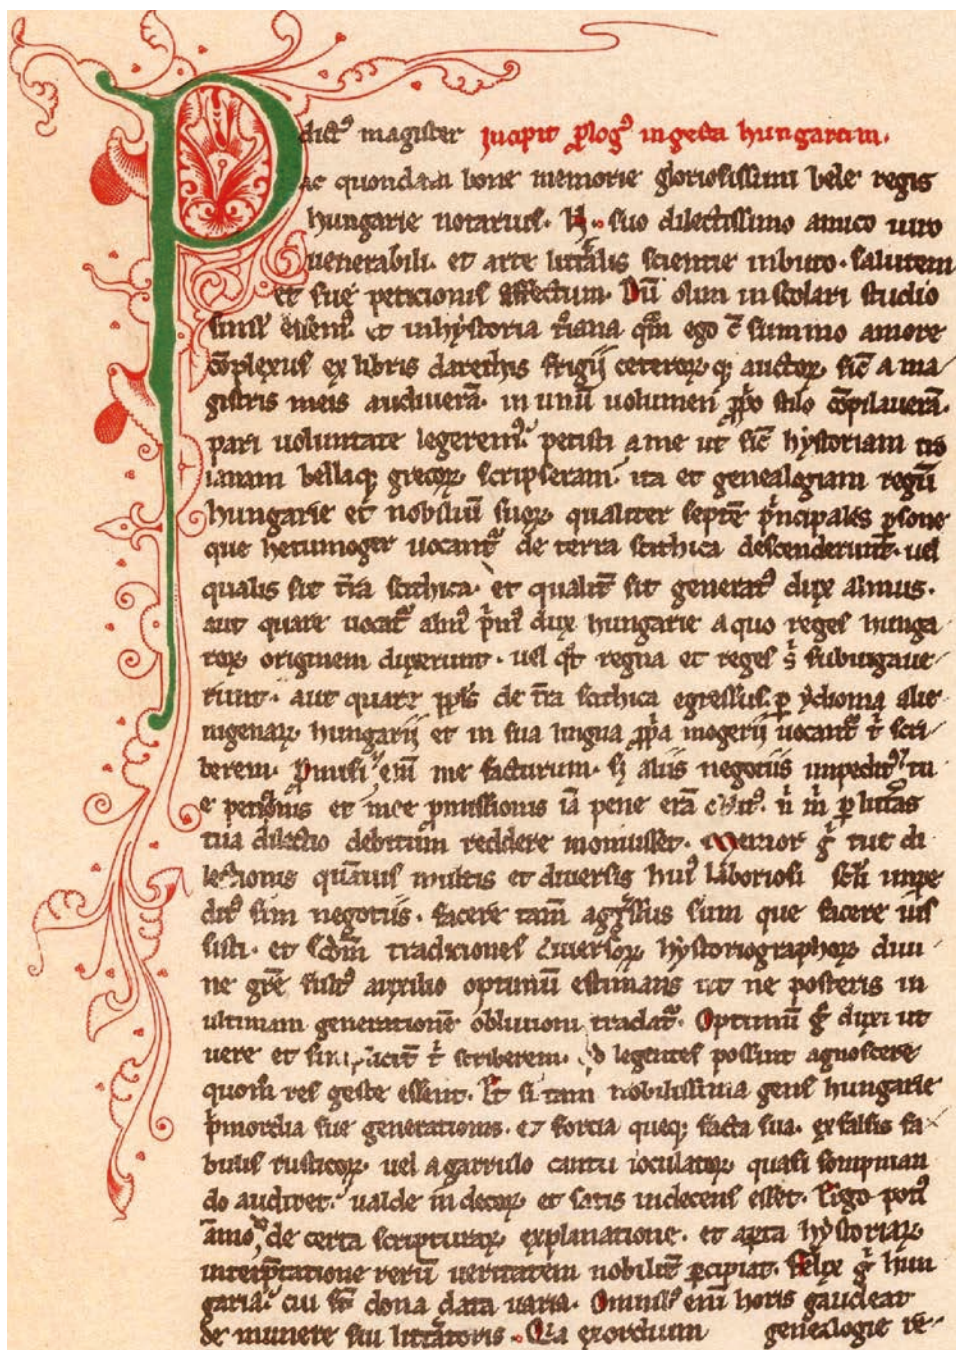 P dict᷒ magister Incipit ꝓlog᷒ in gesta hungarum.
ac quondam bone memorie gloriosissimi bele regis
hungarie notarius. N. suo dilectissimo amico uiro
uenerabili. et arte litt̾alis scientie inbuto. salutem
et sue peticionis effectum. Dū olim in scolari studio
simul essem᷒ et in hystoria t̾oiana qm̄ ego cū summo amore
cōplexus ex libris darethis frigij ceteroꝝ qꝫ auctoꝝ sic̄ a ma
gistris meis audiuerā. in unū uolumen ꝓp̄o stilo cōpilauerā.
pari uoluntate legerem᷒. petisti a me ut sic̄ hystoriam tro
ianam bellaqꝫ grecoꝝ scripseram. ita et genealogiam regū
hungarie et nobiliū suoꝝ qualiter septē p̾ncipales ꝑsone
que hetumoger uocant᷑ de terra scithica descenderunt. uel
qualis sit t̄ra scithica. et qualit̄ sit generat᷒ dux almus.
aut quare uocat᷑ alm᷒ p̾m᷒ dux hungarie a quo reges hunga
roꝝ originem duxerunt. uel qt̾ regna et reges s̾ subiugaue
runt. aut quare ppl̄s de t̄ra scithica egressus ꝑ ydioma alie
nigenaꝝ hungarij et in sua lingua ꝓp̾a mogerij uocant᷑ t̾ scri
berem. Promisi enī me facturum. sꝫ aliis negotiis impedit᷒ tu
e petitōnis et mee p̾missionis iā pene erā oblit᷒. n̾ m̾ ꝑ litt̾as
tua dilectio debitum reddere monuisset. Memor g̾ tue di
lectionis quāuis multis et diuersis hui᷒ laboriosi sc̄li impe
dit᷒ sim negotiis. facere tam̄ agg̾ssus sum que facere ius
sisti. et scd̄m traditiones diuersoꝝ hystoriographoꝝ diui
ne gr̄e fult᷒ auxilio optimū estimans ut ne posteris in
ultimam generationē obliuioni tradat᷑. Optimū g̾ duxi ut
uere et simplicit̄ t̾ scriberem. qd̾ legentes possint agnoscere
quom̾ res geste essent. Et si tam nobilissima gens hungarie
p̾mordia sue generationis. et fortia queqꝫ facta sua. ex falsis fa
bulis rusticoꝝ uel a garrulo cantu ioculatoꝝ quasi sompnian
do audiret. ualde indecoꝝ et satis indecens esset. Ergo poti᷒
āmo᷒ de certa scripturaꝝ explanatione. et aꝑta hystoriaꝝ
interp̄tatione rerū ueritatem nobilit̄ ꝑcipiat. Felix g̾ hun
garia. cui st̄ dona data uaria. Omnib᷒ enī horis gaudeat
de munere sui litt̾atoris. Quia exordium genealogie re